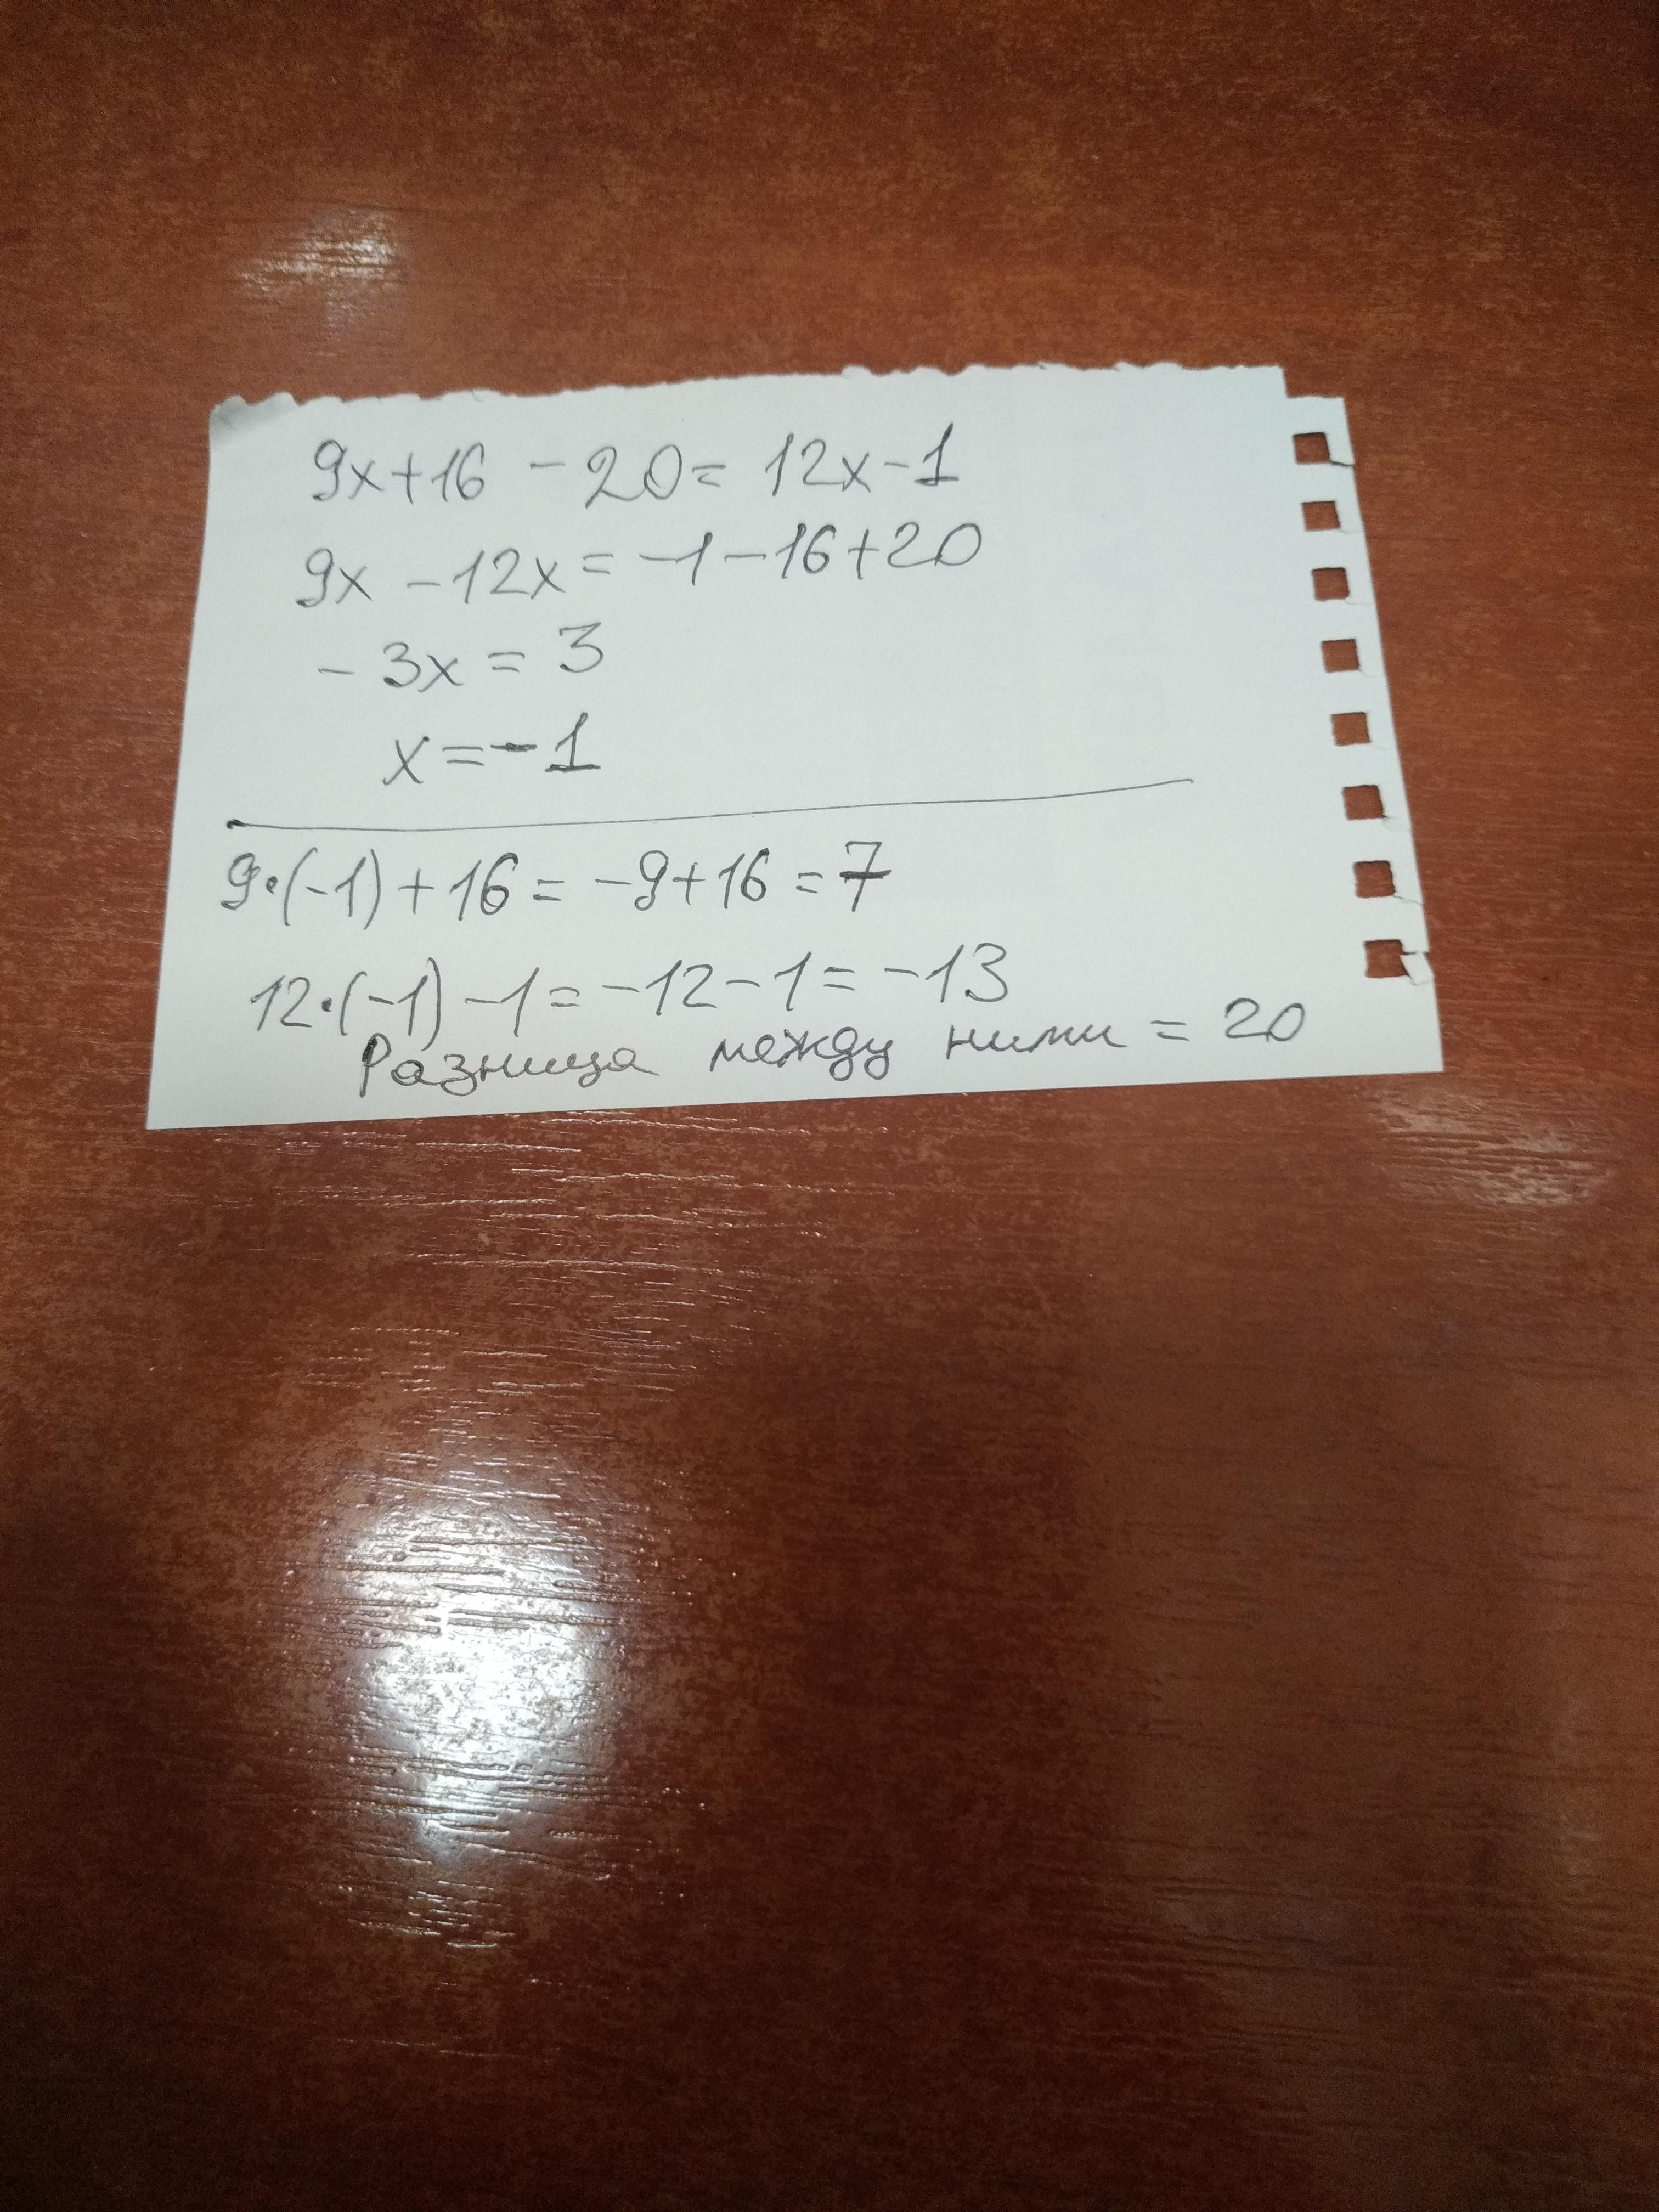 9x+16 -20= 12x-1
9x -12x= -1-16+20
- 3x = 3
x=-1
9·(-1)+16= -9+16=7
12·(-1)-1=-12-1=-13
Разница между ними = 20